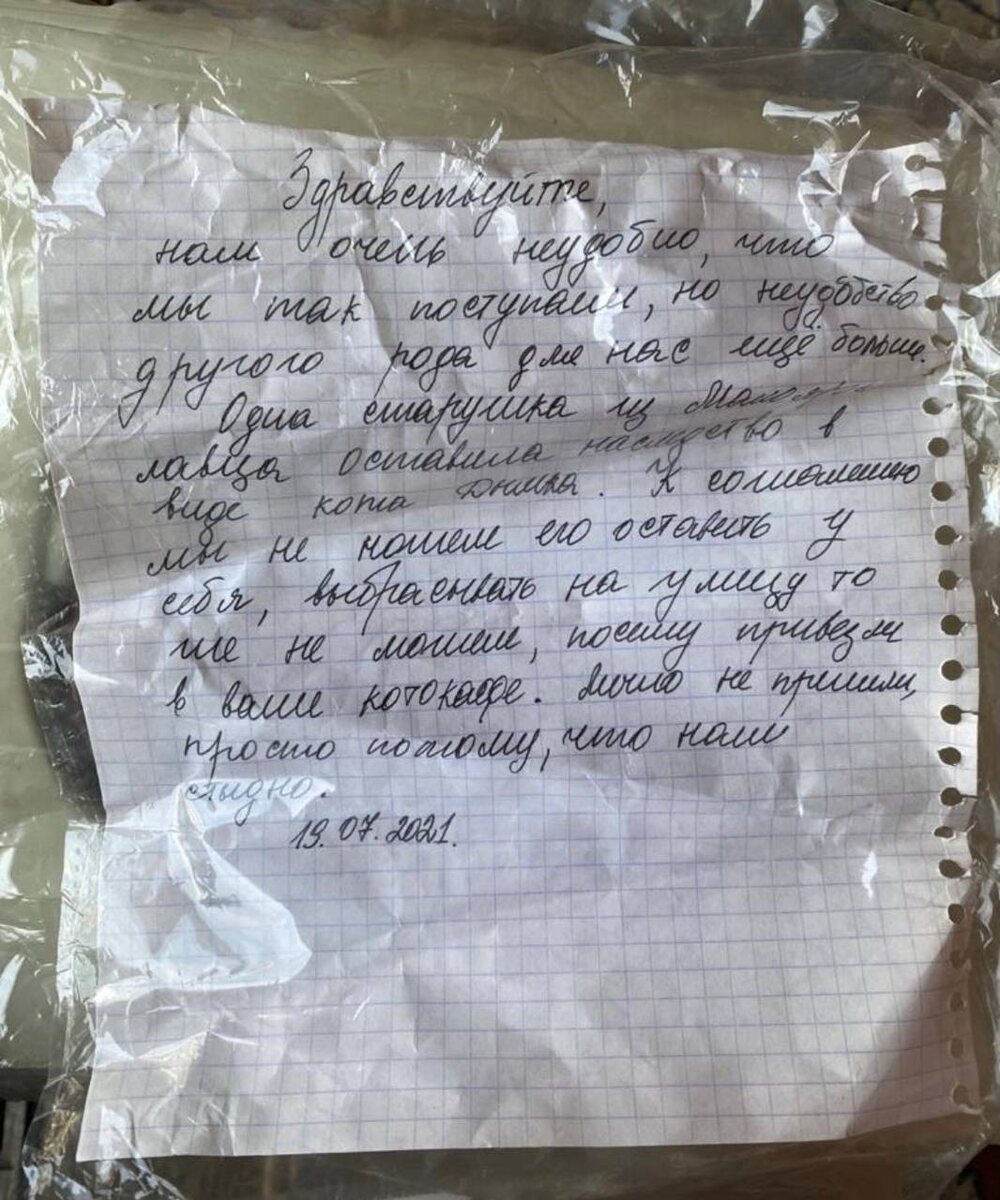 Здравствуйте,
нам очень неудобно, что
мы так поступаем, но неудобство
другого рода для нас ещё больше.
Одна старушка из
лавца оставила наследство в
виде кота Дымка. К сожалению
мы не можем его оставить у
себя, выбрасывать на улицу то
же не можем, посему привезли
в ваше котокафе. Лично не пришли,
просто потому, что нам
стыдно.
19.07.2021.